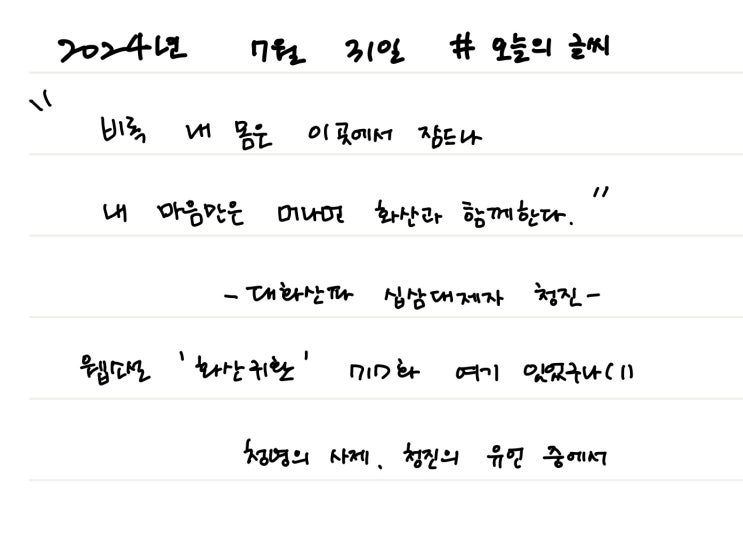 2024년 7월 31일 #오늘의 글씨
"비록 내 몸은 이곳에서 잠드나
내 마음만은 머나먼 화산과 함께한다."
- 대화산파 십삼대제자 청진 -
웹소설 '화산귀환' 기다화 여기 있었구나 (1)
청명의 사제, 청진의 유언 중에서